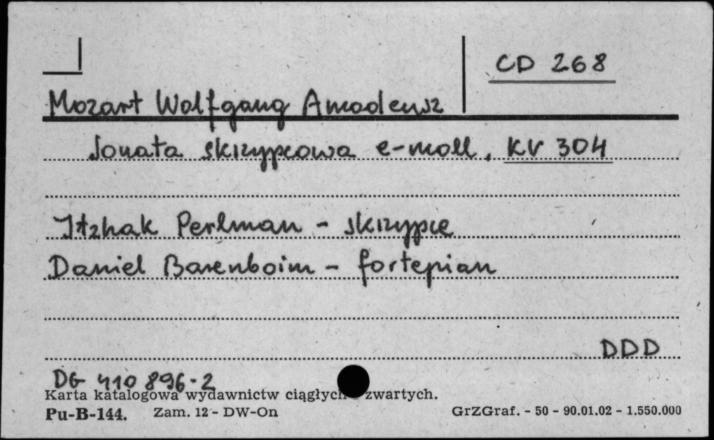 CD 268
Mozart Wolfgang Amadeusz
Sonata skrzypcowa e-moll, KV 304
Itzhak Perlman - skrzypce
Daniel Barenboim - fortepian
DDD
DG 410 896-2
Karta katalogowa wydawnictw ciągłych zwartych.
Pu-B-144. Zam. 12 - DW-On GrZGraf. - 50 - 90.01.02 - 1.550.000